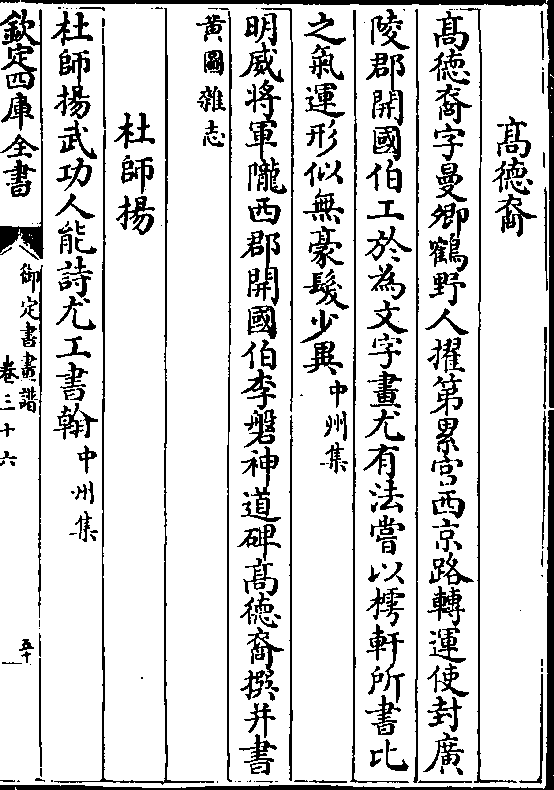 髙德裔
髙德裔字曼卿鶴野人擢第累官西京路轉運使封廣
陵郡開國伯工於為文字畫尤有法嘗以樗軒所書比
之氣運形似無豪髮少異中州集
明威將軍隴西郡開國伯李磐神道碑髙德裔撰并書
黄圖雜志
杜師揚
杜師揚武功人能詩尤工書翰中州集
欽定四庫全書
御定書畫譜
卷三十六
五十一